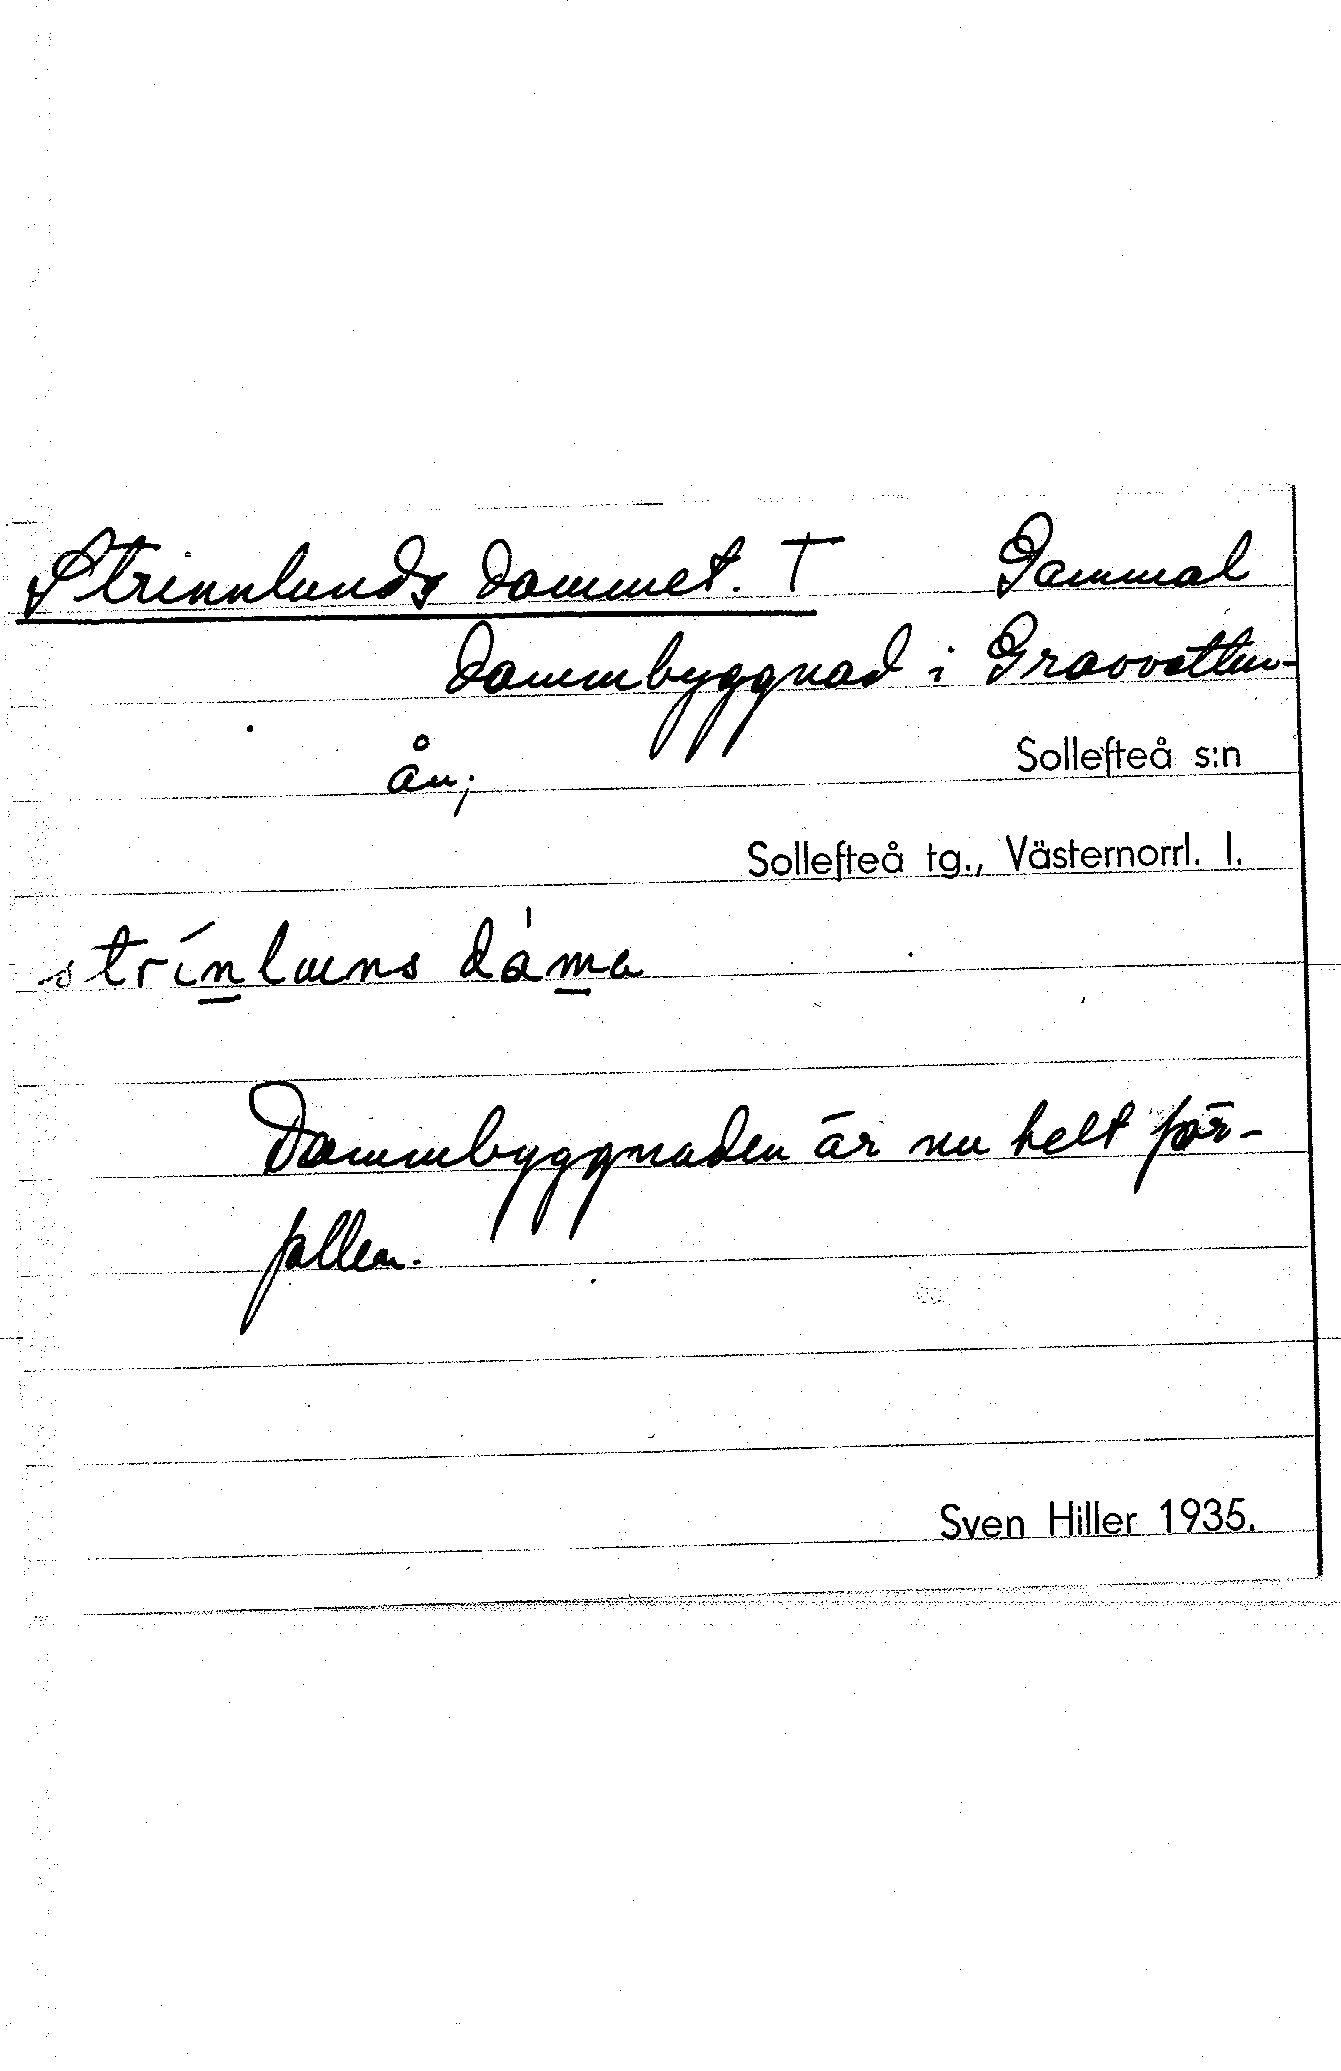 Strinnlunds dammet. T Gammal
dammbyggnad i Graovatten-
ån; Sollefteå s:n
Sollefteå tg., Västernorrl. l.
strínluns dáma
Dammbyggnaden är nu helt för-
fallen.
Sven Hiller 1935.